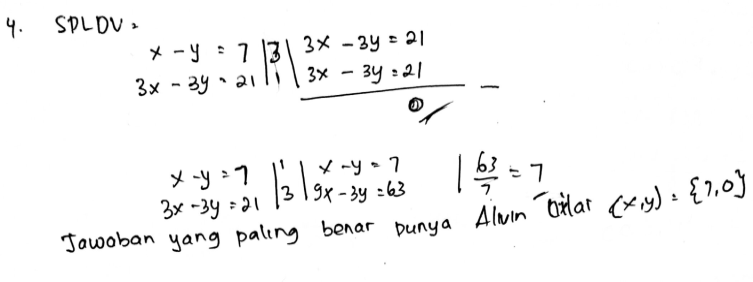 4. SPLDV =
x - y = 7 |3| 3x - 3y = 21
3x - 3y = 21 |1| 3x - 3y = 21
0
x - y = 7 |1| x - y = 7 | 63/7 = 7
3x - 3y = 21 |3| 9x - 3y = 63
Jawaban yang paling benar punya Alvin (x,y) = {7,0}